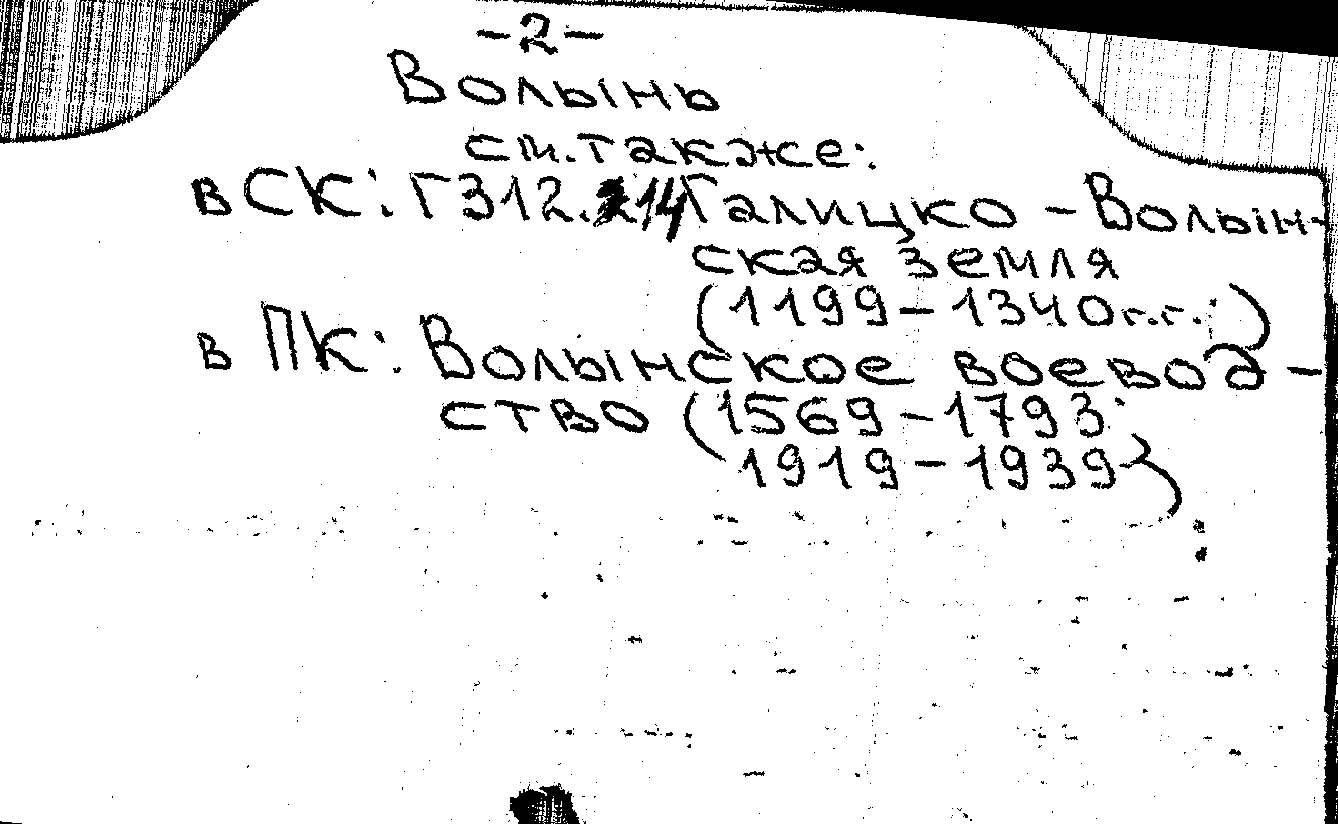 -2-
Волынь
см. также:
в СК: Г312.14 Галицко-Волын-
ская земля
(1199-1340г.г.)
в ПК: Волынское воевод-
ство (1569-1793
1919-1939)